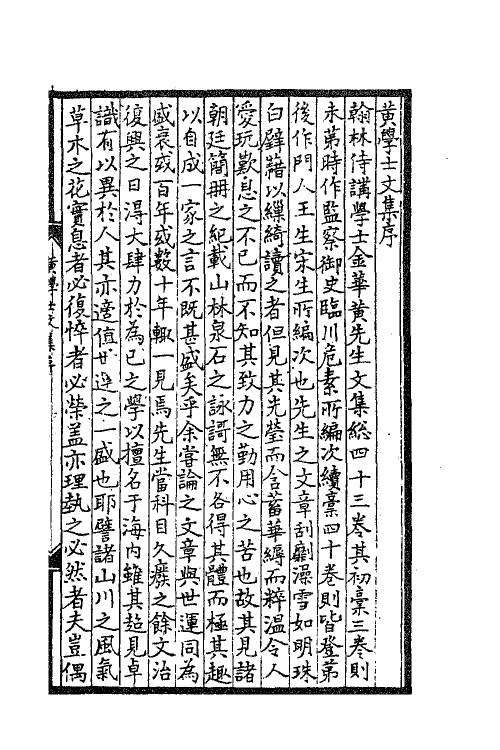 黃學士文集序
翰林侍講學士金華黃先生文集總四十三卷其初藁三卷則
未第時作監察御史臨川危素所編次續藁四十卷則皆登第
後作門人王生宋生所編次也先生之文章刮劘澡雪如明珠
白璧藉以繅綺讀之者但見其光瑩而含蓄華縟而粹溫令人
愛玩歎息之不已而不知其致力之勤用心之苦也故其見諸
朝廷簡冊之紀載山林泉石之詠謌無不各得其體而極其趣
以自成一家之言不既甚盛矣乎余嘗論之文章與世運同為
盛衰或百年或數十年輒一見焉先生當科目久癈之餘文治
復興之日得大肆力於為己之學以擅名于海内雖其超見卓
識有以異於人其亦適值世道之一盛也耶譬諸山川之風氣
草木之花實息者必復悴者必榮盖亦理埶之必然者夫豈偶
黃學士文集序